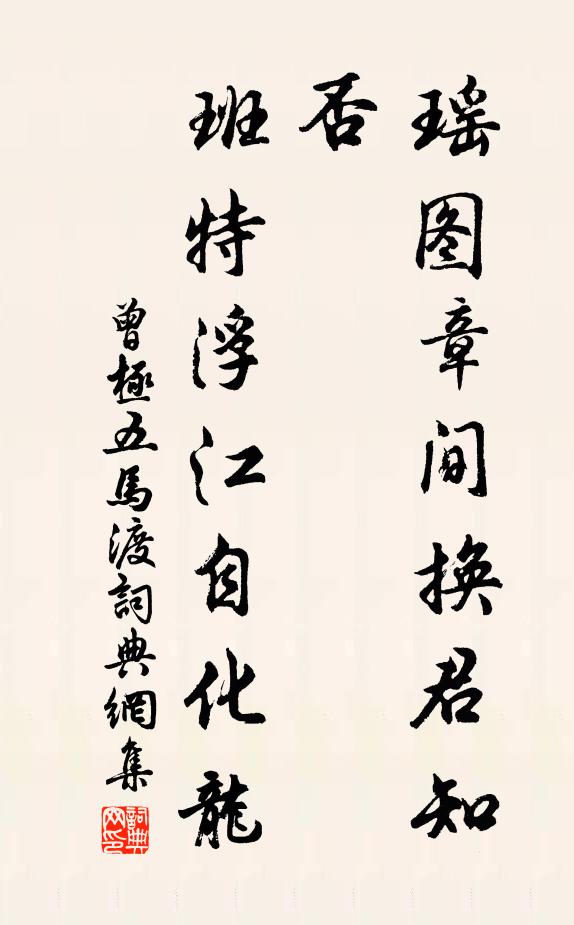 瑶图章间换君知
否
班特浮江自化龙
曾極五馬渡詞典網集
詞典
网印